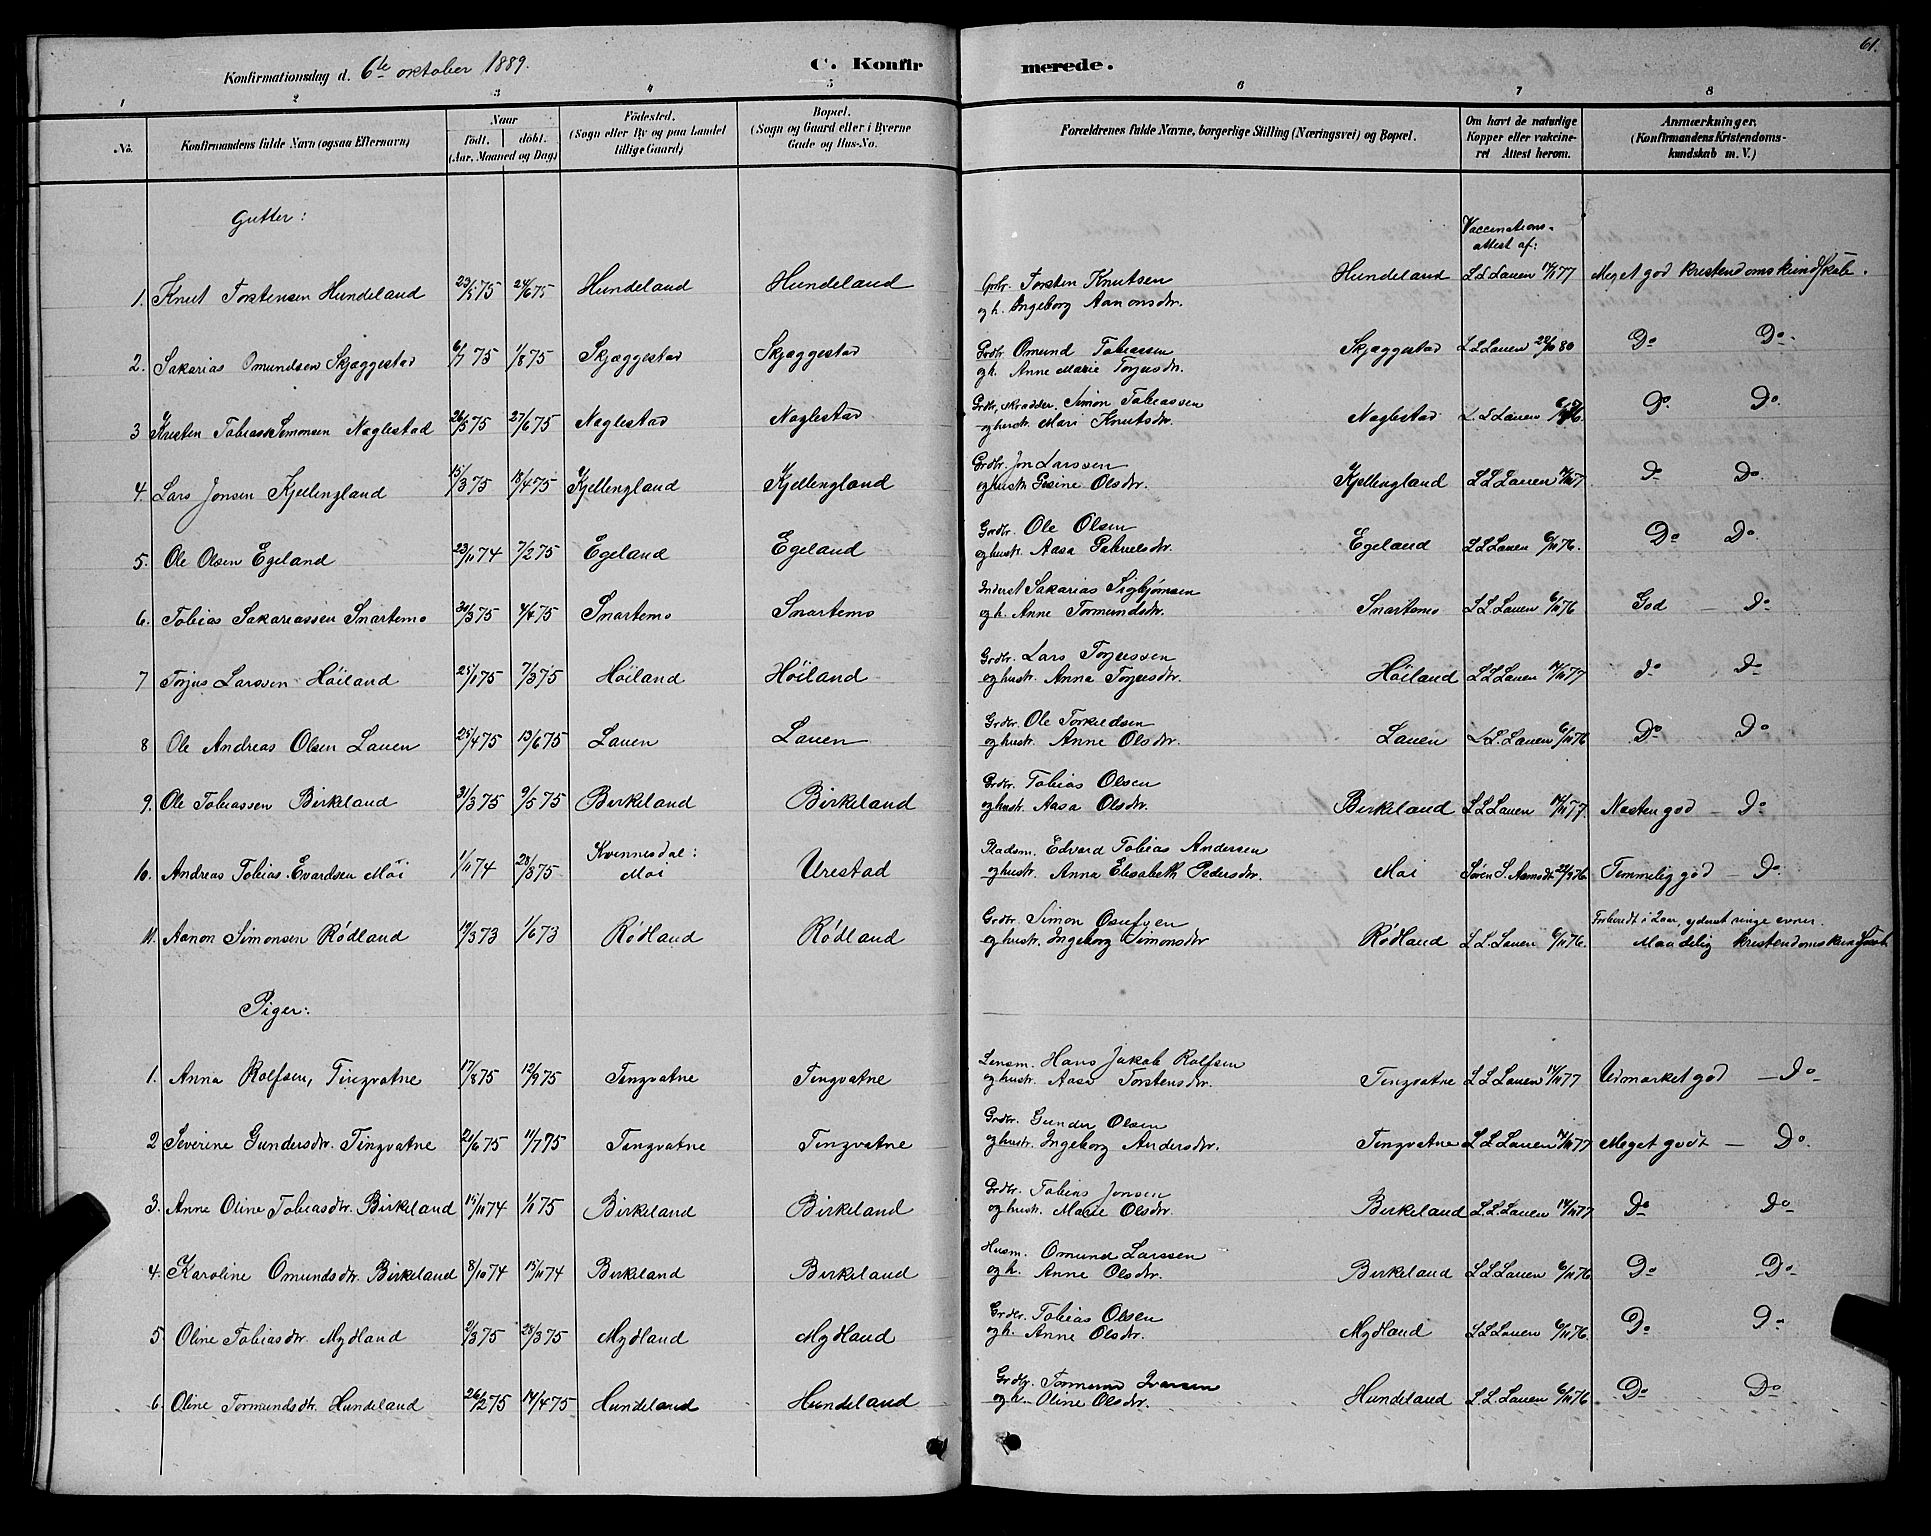 61.
Konfirmationsdag d. 6te oktober 1889.
C. Konfirmerede.
1 2 3 4 5 6 7 8
No.
Konfirmandens fulde Navn (ogsaa Efternavn)
Naar
født. døbt.
(Aar, Maaned og Dag)
Fødested.
(Sogn eller By og paa Landet
tillige Gaard)
Bopæl.
(Sogn og Gaard eller i Byerne
Gade og Hus-No.
Forældrenes fulde Navne, borgerlige Stilling (Næringsvei) og Bopæl.
Om havt de naturlige
Kopper eller vakcine-
ret Attest herom.
Anmærkninger.
(Konfirmandens Kristendoms-
kundskab m. V.)
Gutter:
Vaccinations-
attest af:
1. Knut Torstensen Hundeland 23/5 75 24/6 75 Hundeland Hundeland Grbr. Torsten Knutsen Hundeland L L Lauen 14/11 77 Meget god kristendomskundskab.
og h. Ingeborg Aanonsdtr.
2. Sakarias Omundsen Skjæggestad 6/7 75 1/8 75 Skjæggestad Skjæggestad Grdbr. Omund Tobiassen Skjæggestad L L Lauen 80 Do Do
og h. Anne Marie Torjusdtr.
3 Kristen Tobias Simonsen Naglestad 26/5 75 27/6 75 Naglestad Naglestad Grdbr, skrædder Simon Tobiassen Naglestad L. L Lauen 76. Do Do
og hustr. Mari Knutsdtr.
4. Lars Jonsen Kjellingland 15/3 75 18/4 75 Kjellingland Kjellingland Grdbr. Jon Larssen Kjellingland L L Lauen 14/11 77 Do Do.
og hustr. Gesine Olsdtr.
5. Ole Olsen Egeland 23/11 74 7/2 75 Egeland Egeland Grdbr. Ole Olsen Egeland L L Lauen 6/11 76. Do Do
og hustr. Aasa Gabrielsdtr.
6. Tobias Sakariassen Snartemo 30/3 75 4/4 75 Snartemo Snartemo Inderst Sakarias Sigbjørnsen Snartemo L L. Lauen 6/11 76 God — Do
og h. Anne Tormundsdtr.
7 Torjus Larssen Høiland 25/1 75 7/3 75 Høiland Høiland Grdbr. Lars Torjussen Høiland L L Lauen 14/11 77 do Do
og hustr. Anna Torjusdtr.
8 Ole Andreas Olsen Lauen 25/4 75 13/6 75 Lauen Lauen Grdbr. Ole Torkildsen Lauen L L. Lauen 6/11 76 Do Do
og hustr. Anne Olsdtr.
9. Ole Tobiassen Birkeland 31/3 75 9/5 75 Birkeland Birkeland Grdbr. Tobias Olsen Birkeland L L Lauen 14/11 77. Næsten god — Do
og hustr. Aasa Olsdtr.
10. Andreas Tobias Evardsen Moi 1/11 74 28/3 75 Kvinnesdal: Moi Urestad Pladsm. Edvard Tobias Andersen Moi Søren S. Aamodt 22/9 76. Temmelig god — Do.
og hustr. Anna Elisabeth Pedersdtr.
11. Aanon Simonsen Rødland 19/3 73 1/6 73 Rødland Rødland Grdbr. Simon Rødland L L. Lauen 6/11 76. Forberedt i 2 aar, yderst ringe evner.
og hustr. Ingeborg Simonsdtr Maadelig kristendomskundskab
Piger:
1. Anna Rolfsen, Tingvatne 17/8 75 12/9 75 Tingvatne Tingvatne Lensm. Hans Jakob Rolfsen Tingvatne L L Lauen 14/11 77 Udmærket god — Do
og hustr. Aasa Torstensdtr.
2 Severine Gundersdtr. Tingvatne 21/6 75 11/7 75 Tingvatne Tingvatne Grdbr. Gunder Olsen Tingvatne L L Lauen 14/11 77 Meget godt — Do.
og hustr. Ingeborg Andersdtr.
3. Anne Oline Tobiasdtr. Birkeland 15/11 74 1/1 75 Birkeland Birkeland Grdbr. Tobias Jonsen Birkeland L. L. Lauen 14/11 77 Do Do
og hustr. Marie Olsdtr
4. Karoline Omundsdtr. Birkeland 8/10 74 15/11 74 Birkeland Birkeland Husm. Omund Larssen Birkeland L L Lauen 6/11 76 Do Do
og h. Anne Olsdtr.
5. Oline Tobiasdtr. Mydland 2/3 75 28/3 75 Mydland Mydland Grdbr. Tobias Olsen Mydland L L Lauen 6/11 76. Do Do
og h. Anne Olsdtr.
6. Oline Tormundsdtr. Hundeland 26/2 75 14/4 75 Hundeland Hundeland Grdbr. Tormund Iversen Hundeland L L. Lauen 6/11 76 Do Do
og h. Oline Olsdtr.